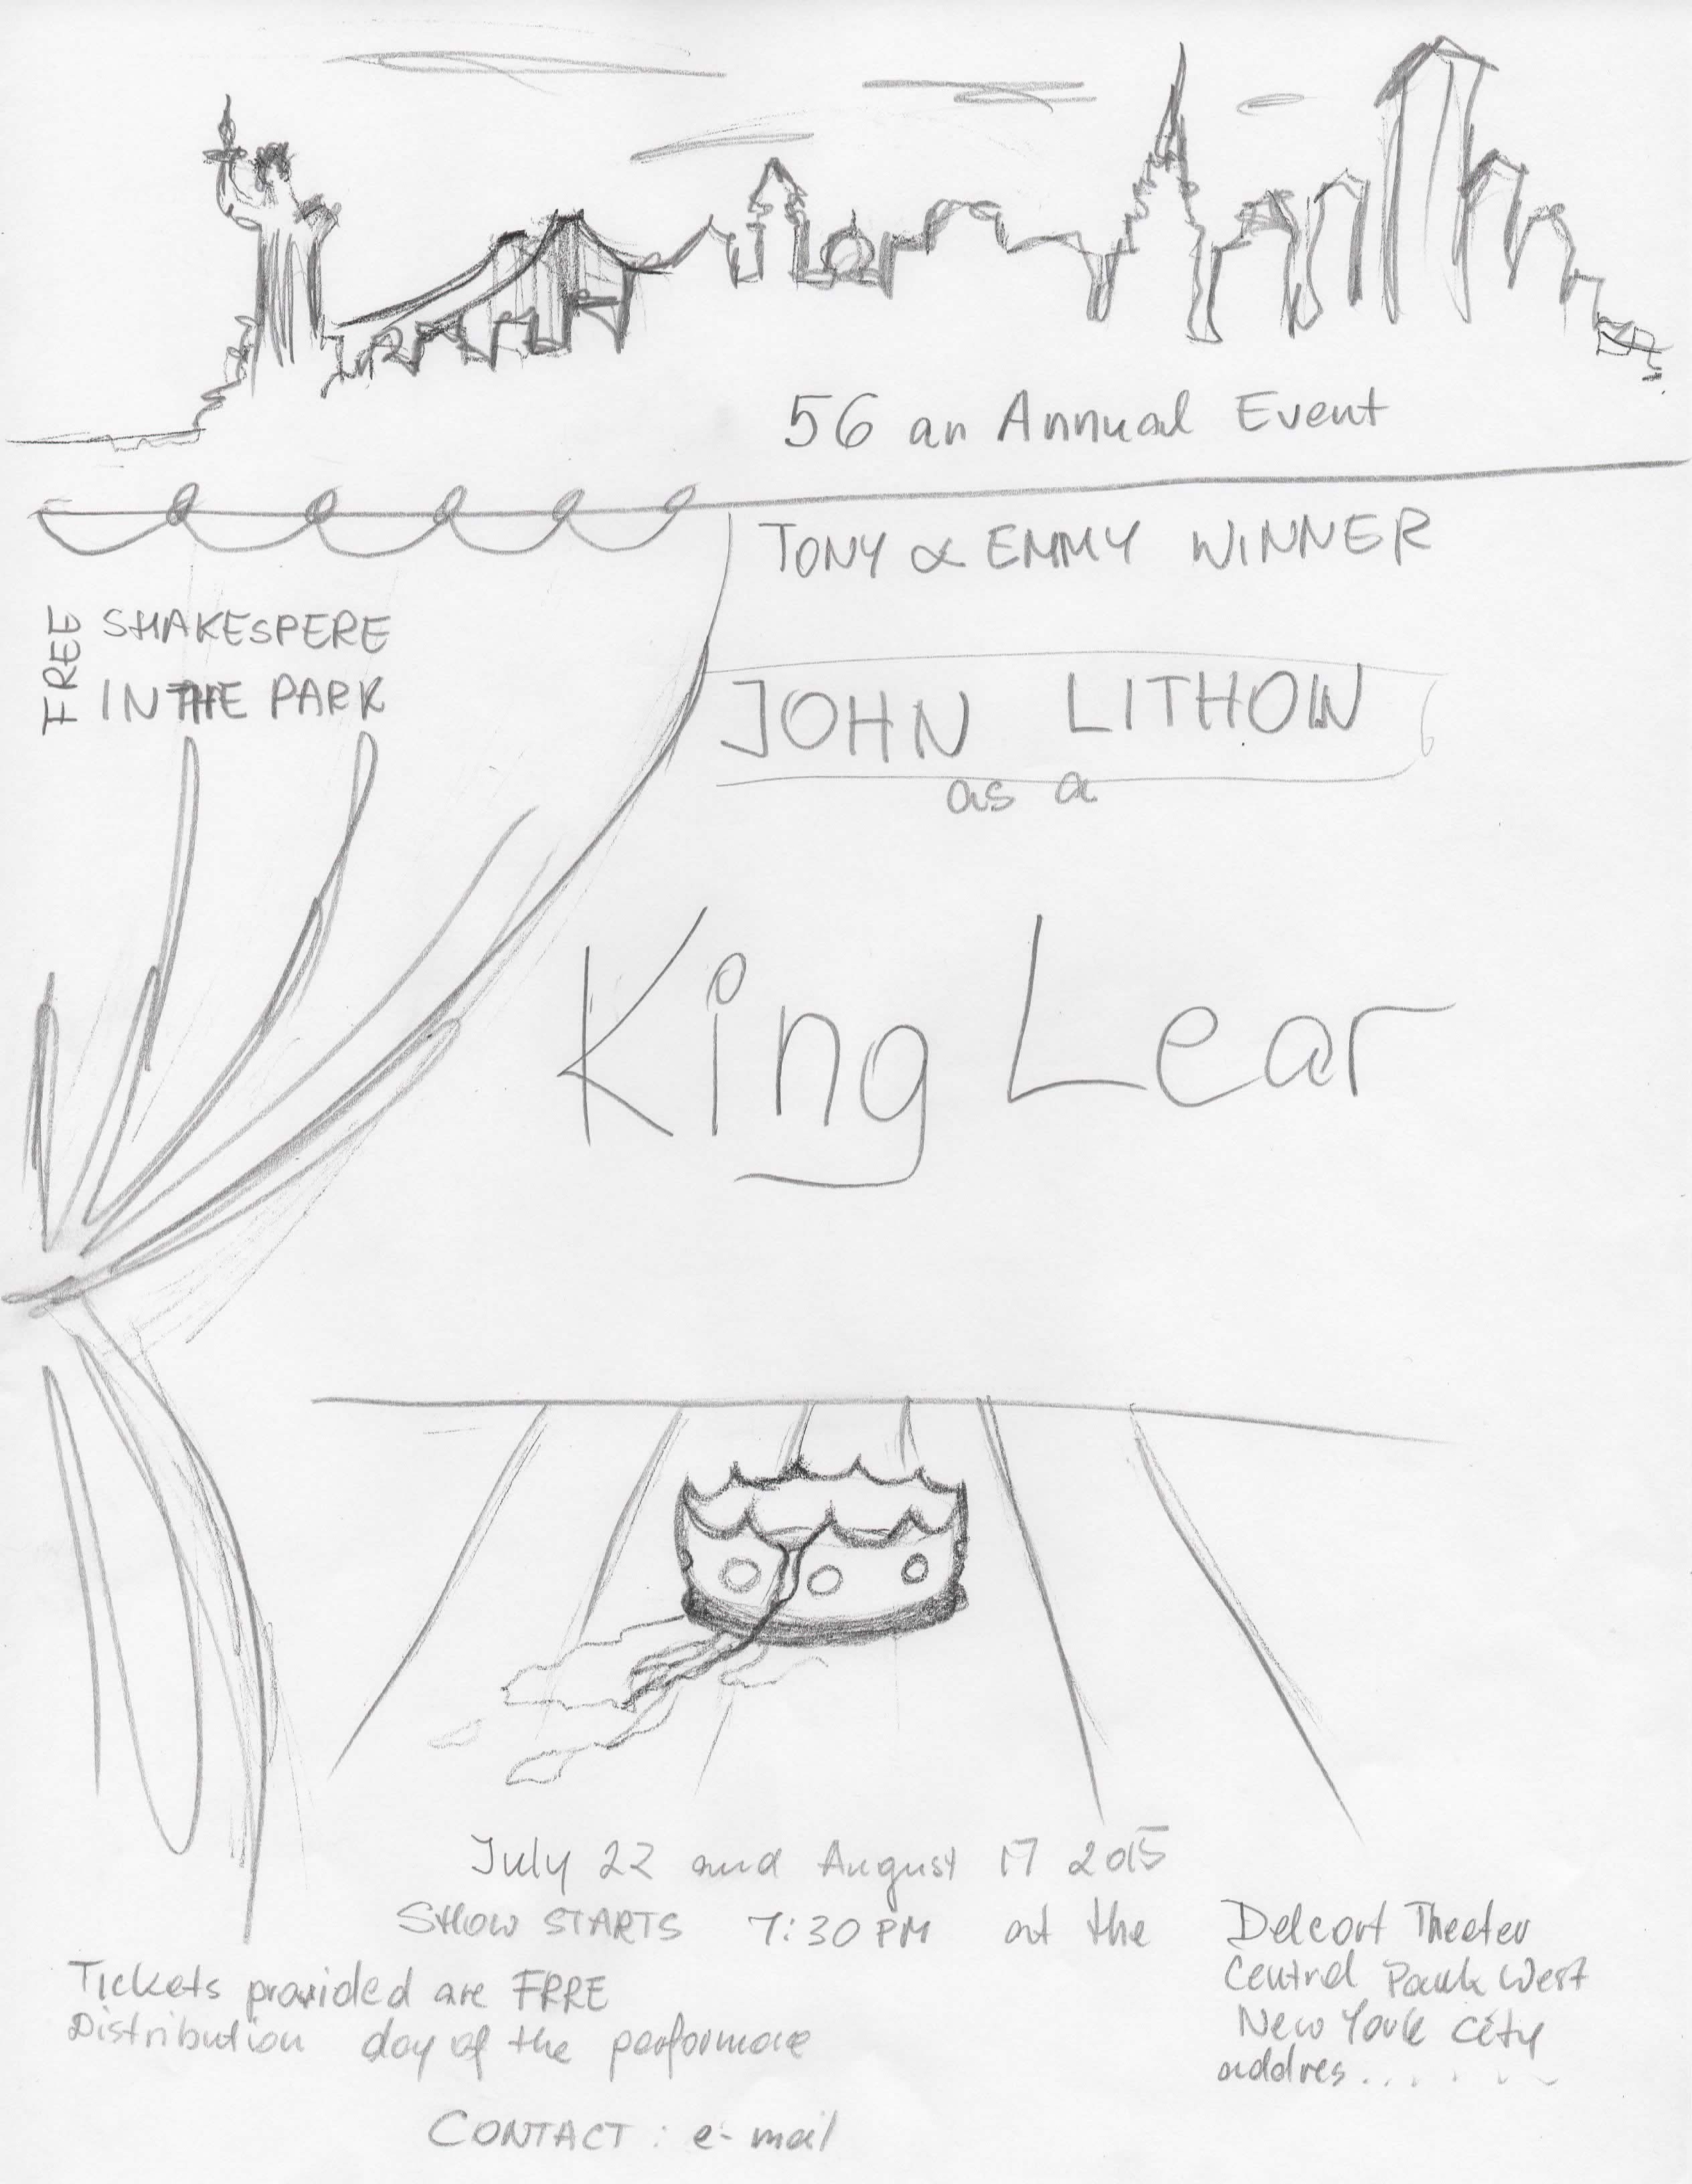 56 an Annual Event
TONY & EMMY WINNER
FREE
SHAKESPERE
IN THE PARK
JOHN LITHOW
as a
King Lear
July 22 and August 17 2015
SHOW STARTS 7:30 PM at the
Delcort Theeter
Central Park West
New York City
addres......
Tickets provided are FRRE
Distribution day of the performace
CONTACT: e-mail